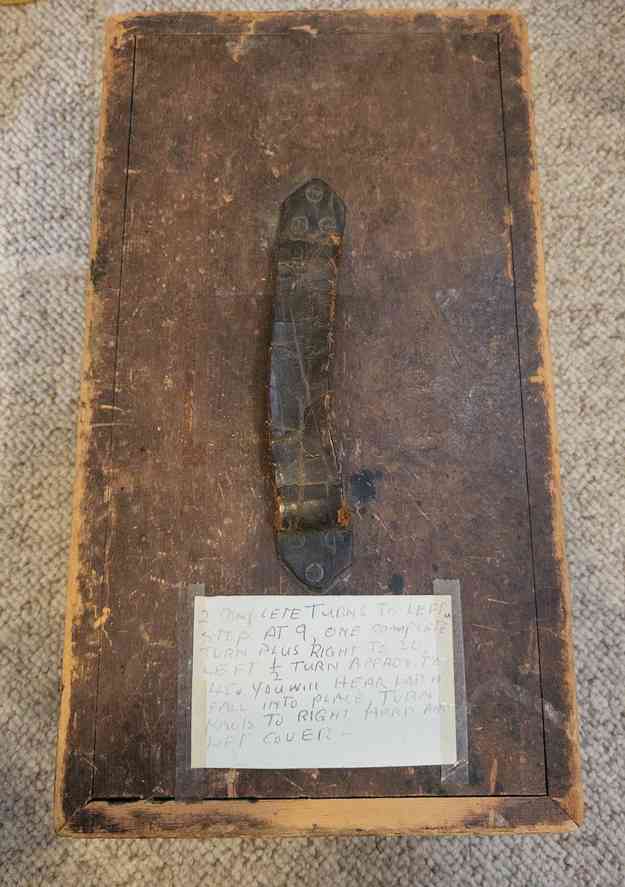 2 COMPLETE TURNS TO LEFT,
STOP AT 9, ONE COMPLETE
TURN PLUS RIGHT TO
LEFT ½ TURN APPROX TO
YOU WILL HEAR LATCH
FALL INTO PLACE TURN
KNOB TO RIGHT HARD AND
LIFT COVER —